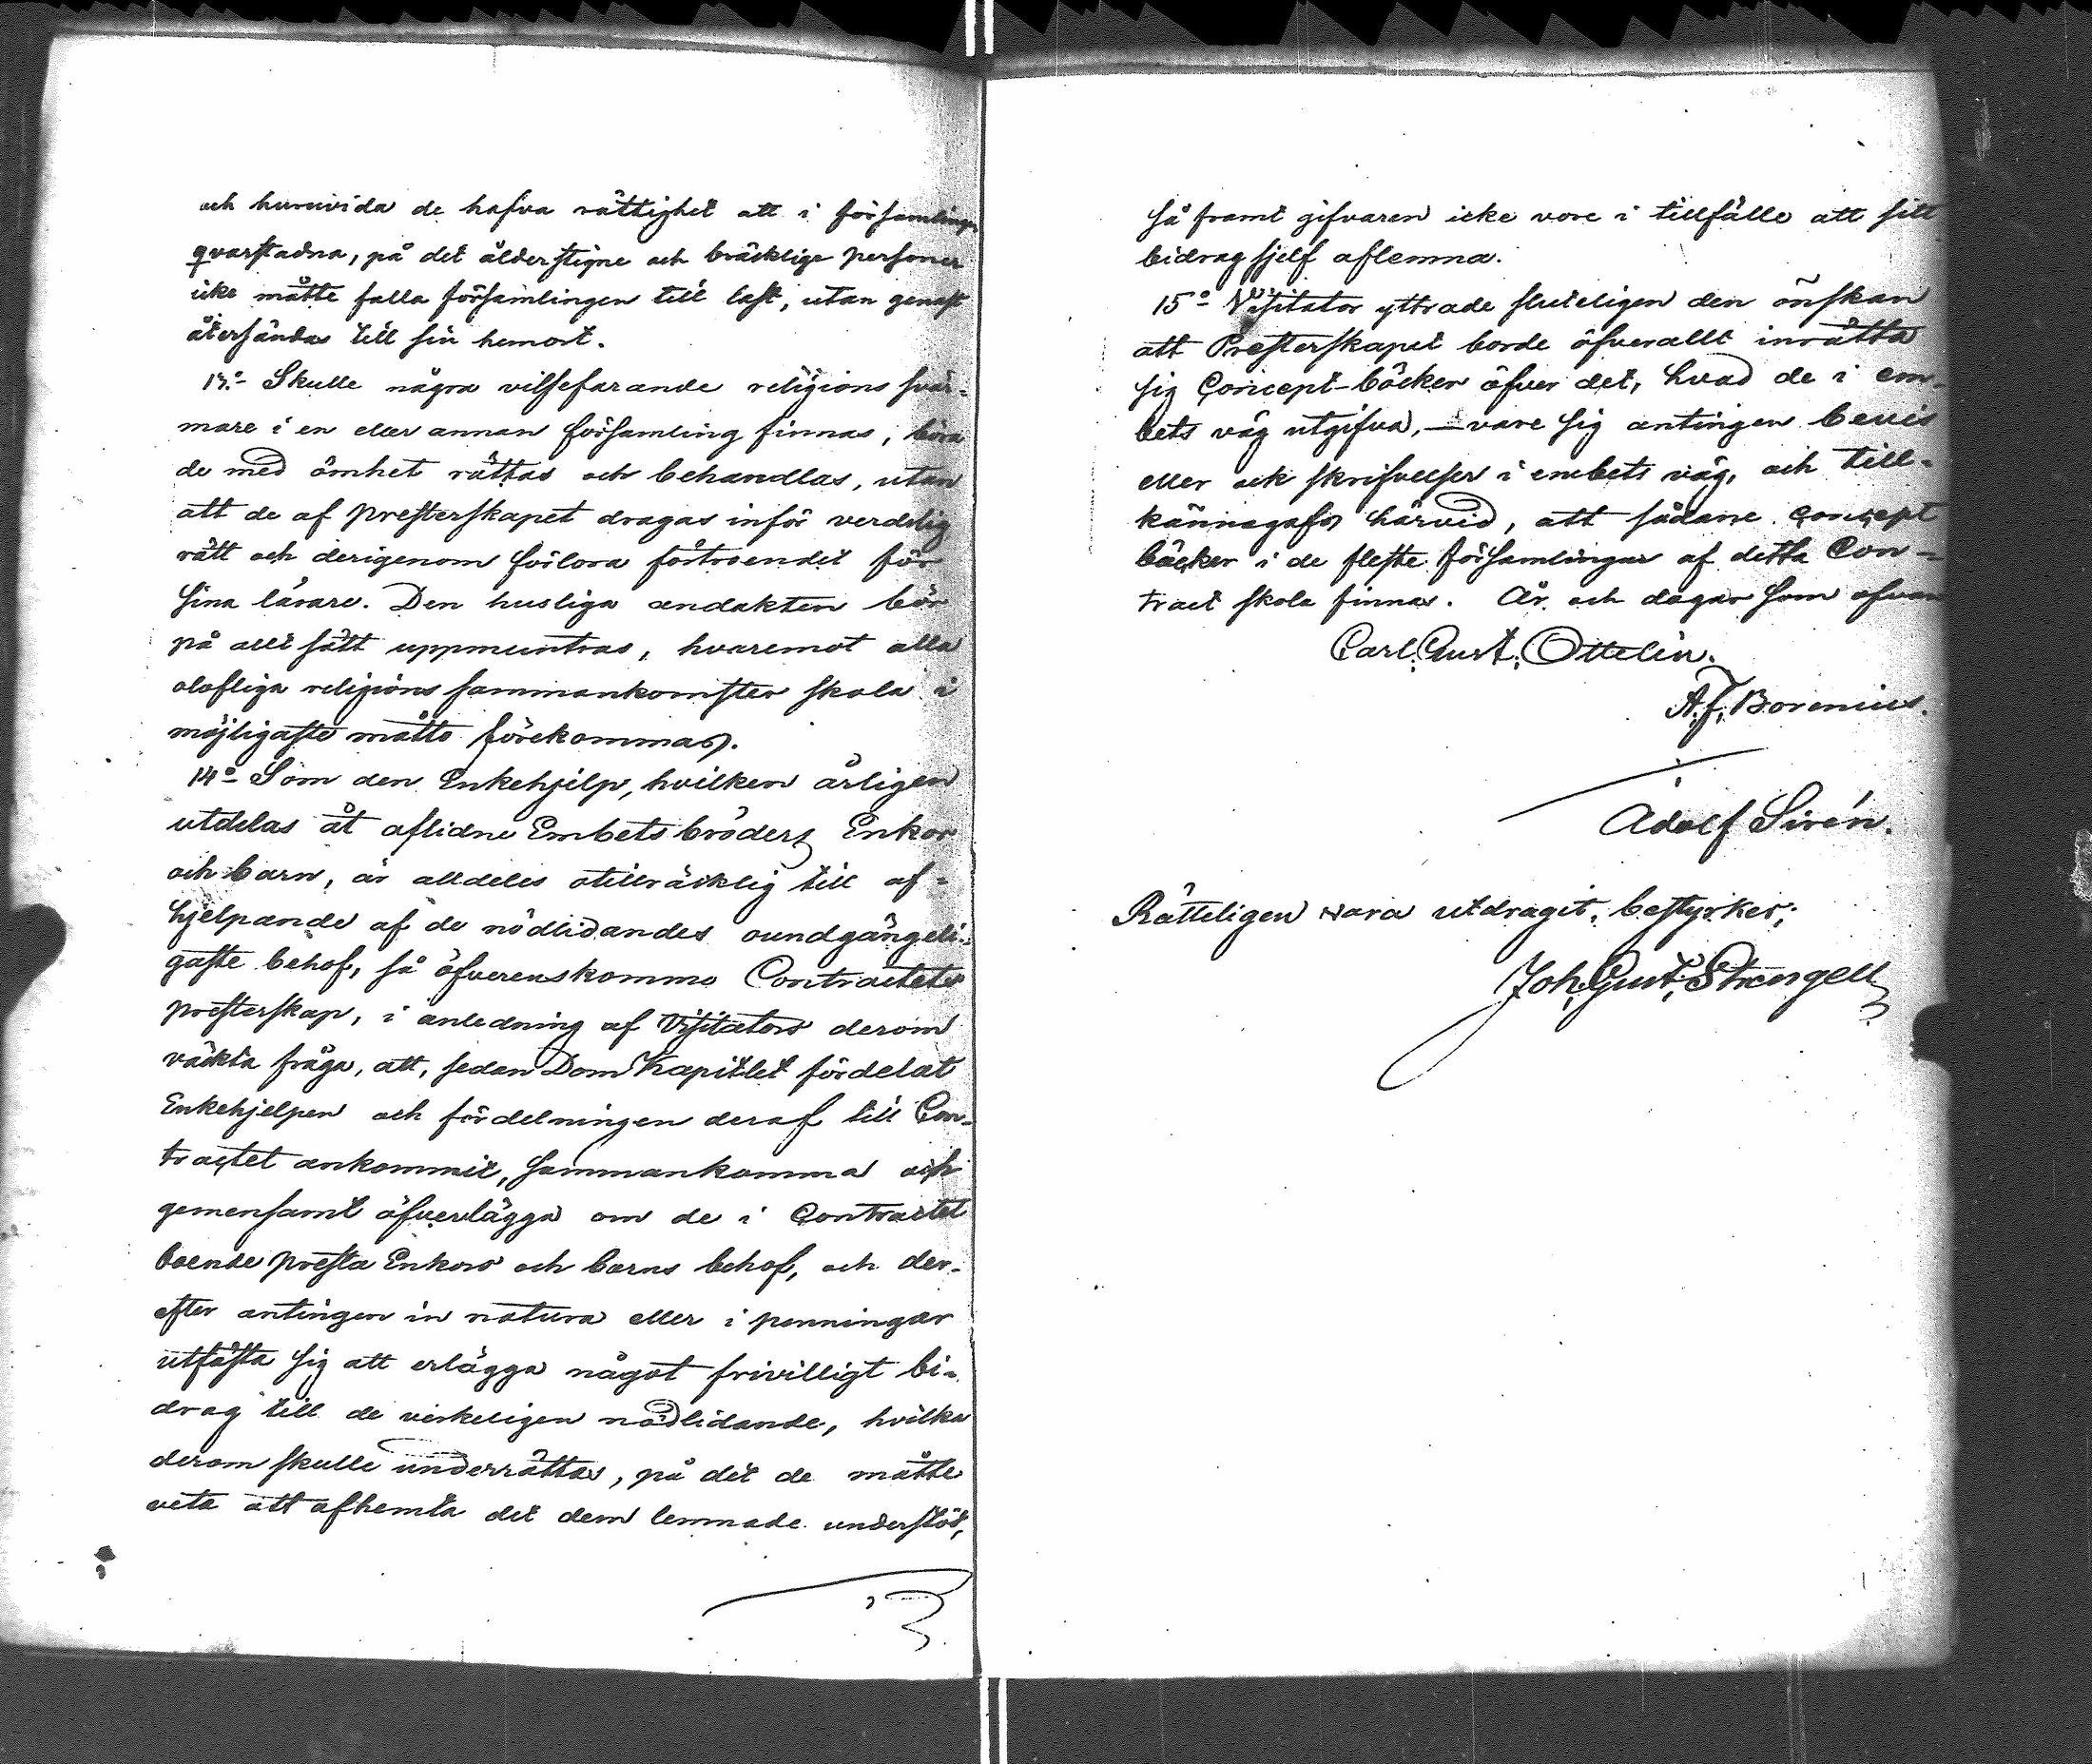 och huruvida de hafva rättighet att i församlingen
qvarstadna, på det ålderstigne och bräcklige personer
icke måtte falla församlingen till last, utan genast
återsändas till sin hemort.
13:o Skulle några vilsefarande religions svär-
mare i en eller annan församling finnas, böra
de med ömhet rättas och behandlas, utan
att de af presterskapet dragas inför verdslig
rätt och derigenom förlora förtroendet för
sina lärare. Den husliga andakten bör
på allt sätt uppmuntras, hvaremot alla
olofliga religions sammankomster skola i
möjligaste måtto förekommas.
14:o Som den Enkehjelp, hvilken årligen
utdelas åt aflidne Embets bröders Enkor
och barn, är alldeles otillräcklig till af-
hjelpande af de nödlidandes oundgängeli-
gaste behof, så öfverenskommo Contractets
presterskap, i anledning af Visitators derom
väckta fråga, att, sedan Dom Kapitlet fördelat
Enkehjelpen och fördelningen deraf till Con-
tractet ankommit, sammankomma och
gemensamt öfverlägga om de i Contractet
boende presta Enkors och barns behof, och der-
efter antingen in natura eller i penningar
utfästa sig att erlägga något frivilligt bi-
drag till de verkeligen nödlidande, hvilka
derom skulle underrättas, på det de måtte
veta att afhemta det dem lemnade understöd,
så framt gifvaren icke vore i tillfälle att sitt
bidrag sjelf aflemna.
15:o Visitator yttrade sluteligen den önskan
att Presterskapet borde öfverallt inrätta
sig Concept-böcker öfver det, hvad de i em-
bets väg utgifva, – vare sig antingen bevis
eller ock skrifvelser i embets väg, och till-
kännagafs härvid, att sådane concept
böcker i de fleste församlingar af detta Con-
tract skola finnas. År och dagar som ofvan
Carl Gust. Ottelin.
A. f. Borenius.
Adolf Sirén.
Rätteligen vara utdragit, bestyrker;
Joh. Gust. Strengell